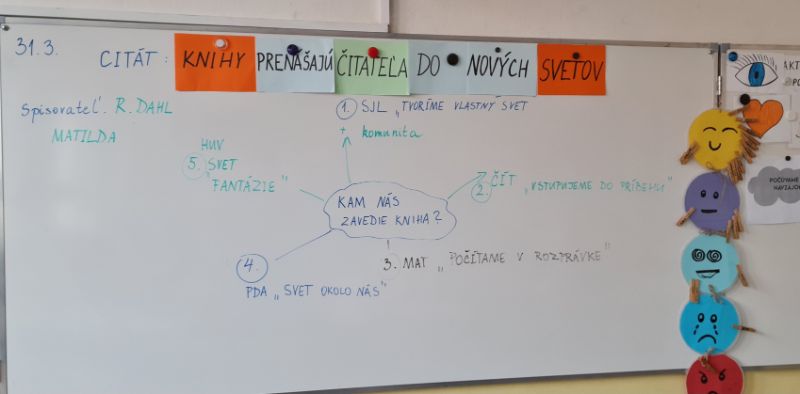 31.3.
CITÁT: KNIHY PRENÁŠAJÚ ČITATEĽA DO NOVÝCH SVETOV
Spisovateľ R. DAHL
MATILDA
1. SJL „TVORÍME VLASTNÝ SVET
+ komunita
HUV
5. SVET
"FANTÁZIE"
2. ČÍT „VSTUPUJEME DO PRÍBEHU"
KAM NÁS
ZAVEDIE KNIHA?
3. MAT „POČÍTAME V ROZPRÁVKE"
4.
PDA „SVET OKOLO NÁS"
POČÚVANIE